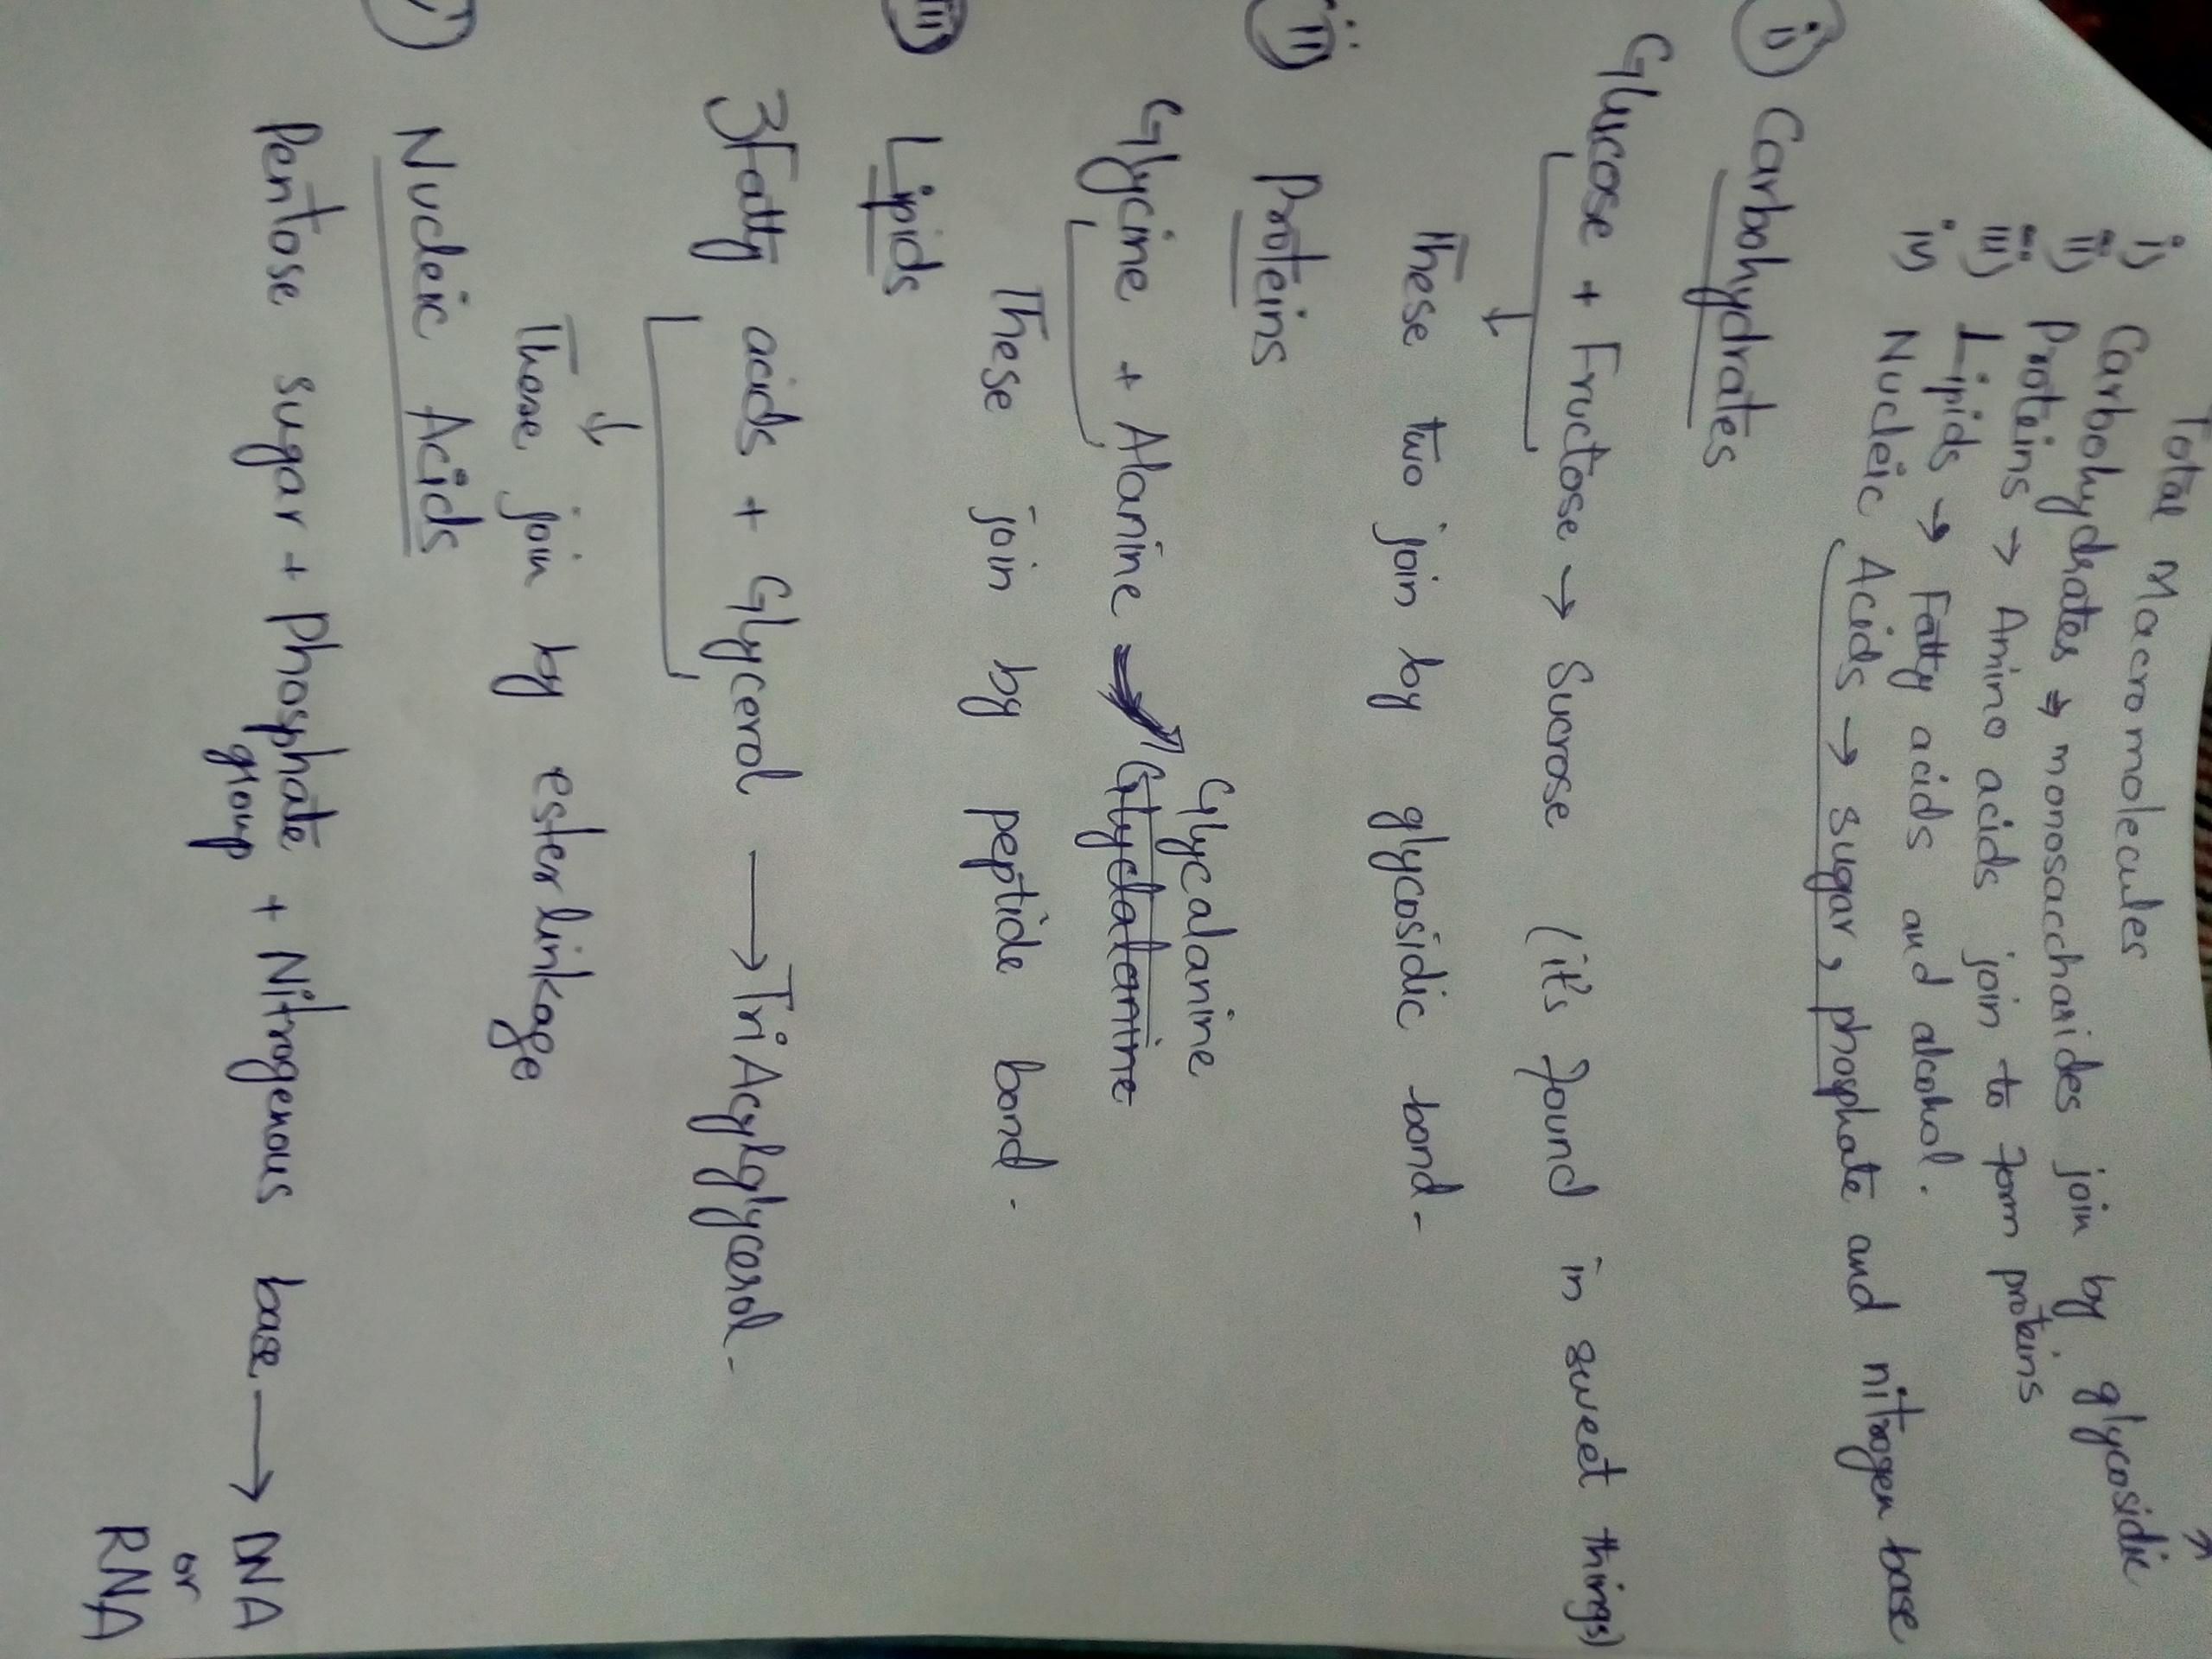 Total Macromolecules
i) Carbohydrates → monosaccharides join by glycosidic
ii) Proteins → Amino acids join to form proteins
iii) Lipids → Fatty acids and alcohol.
iv) Nucleic Acids → sugar, phosphate and nitrogen base
i) Carbohydrates
Glucose + Fructose → Sucrose (it's found in sweet things)
↓
These two join by glycosidic bond.
ii) Proteins
Glycalanine
Glycine + Alanine → Glyclalanine
These join by peptide bond.
iii) Lipids
3Fatty acids + Glycerol → TriAcylglycerol.
↓
These join by ester linkage
Nucleic Acids
Pentose sugar + Phosphate group + Nitrogenous base → DNA
or
RNA